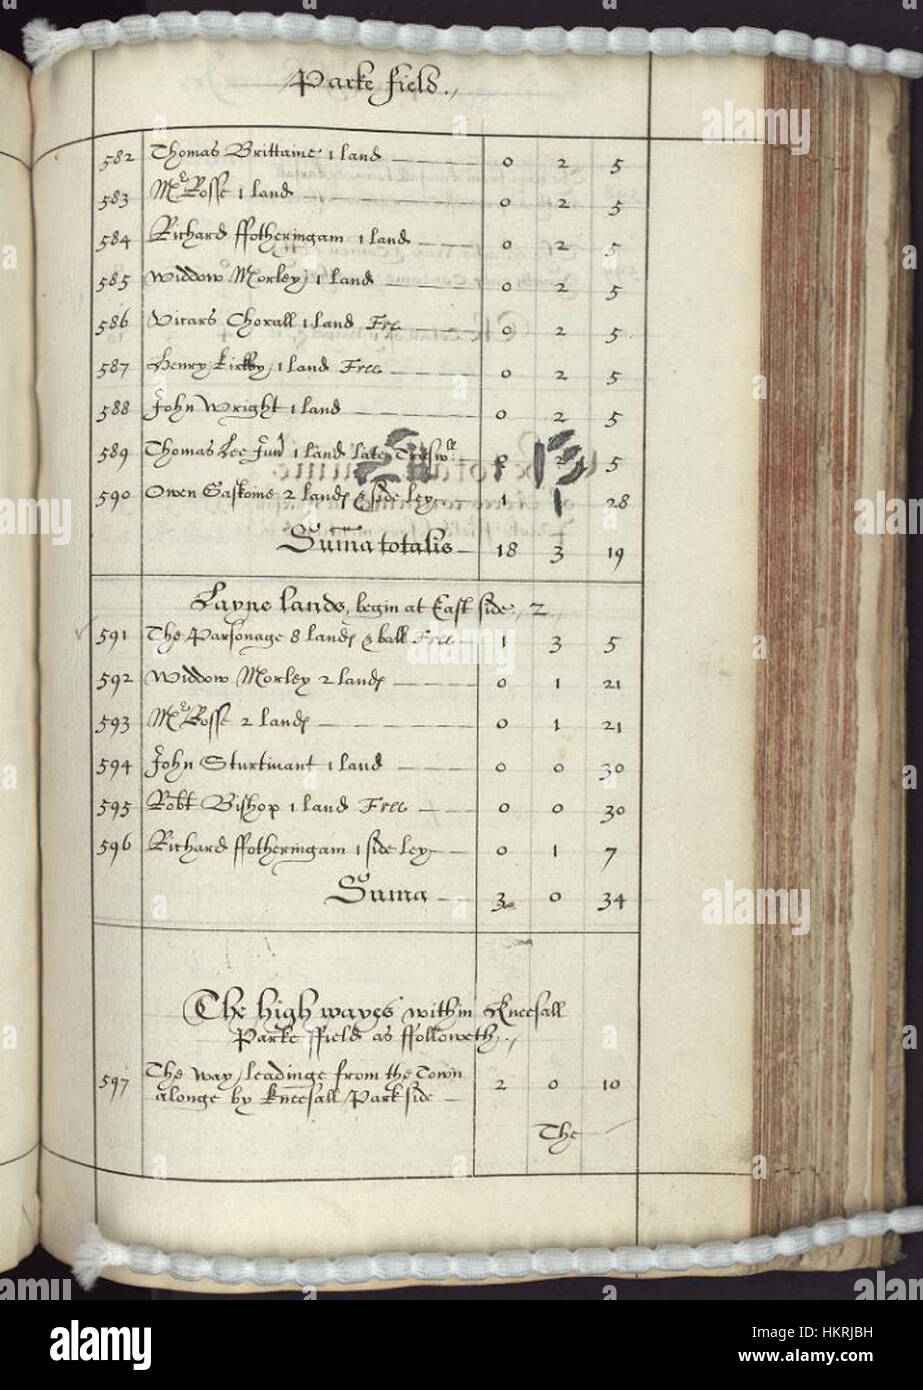 Parke field.,
582 Thomas Brittaine 1 land 0 2 5
583 Mr Rosse 1 land 0 2 5
584 Richard ffotheringam 1 land 0 2 5
585 Widdow Morley 1 land 0 2 5
586 Vicars Chorall 1 land Free 0 2 5
587 Henry Kirkby 1 land Free 0 2 5
588 John Wright 1 land 0 2 5
589 Thomas Lee Jun 1 land late 2 5
590 Owen Gaskoine 2 lands & side ley 1 1 28
Suma totalis 18 3 19
Layne lands, begin at East side, 2
591 The Parsonage 8 lands & balk Free 1 3 5
592 Widdow Morley 2 lands 0 1 21
593 Mr Rosse 2 lands 0 1 21
594 John Sturtivant 1 land 0 0 30
595 Robt Bishop 1 land Free 0 0 30
596 Richard ffotheringam 1 side ley 0 1 7
Suma 3 0 34
The high wayes within Kneesall
Parke ffield as ffolloweth.,
597 The way leadinge from the Town
alonge by Kneesall Park side 2 0 10
The
alamy
Image ID: HKRJBH
www.alamy.com